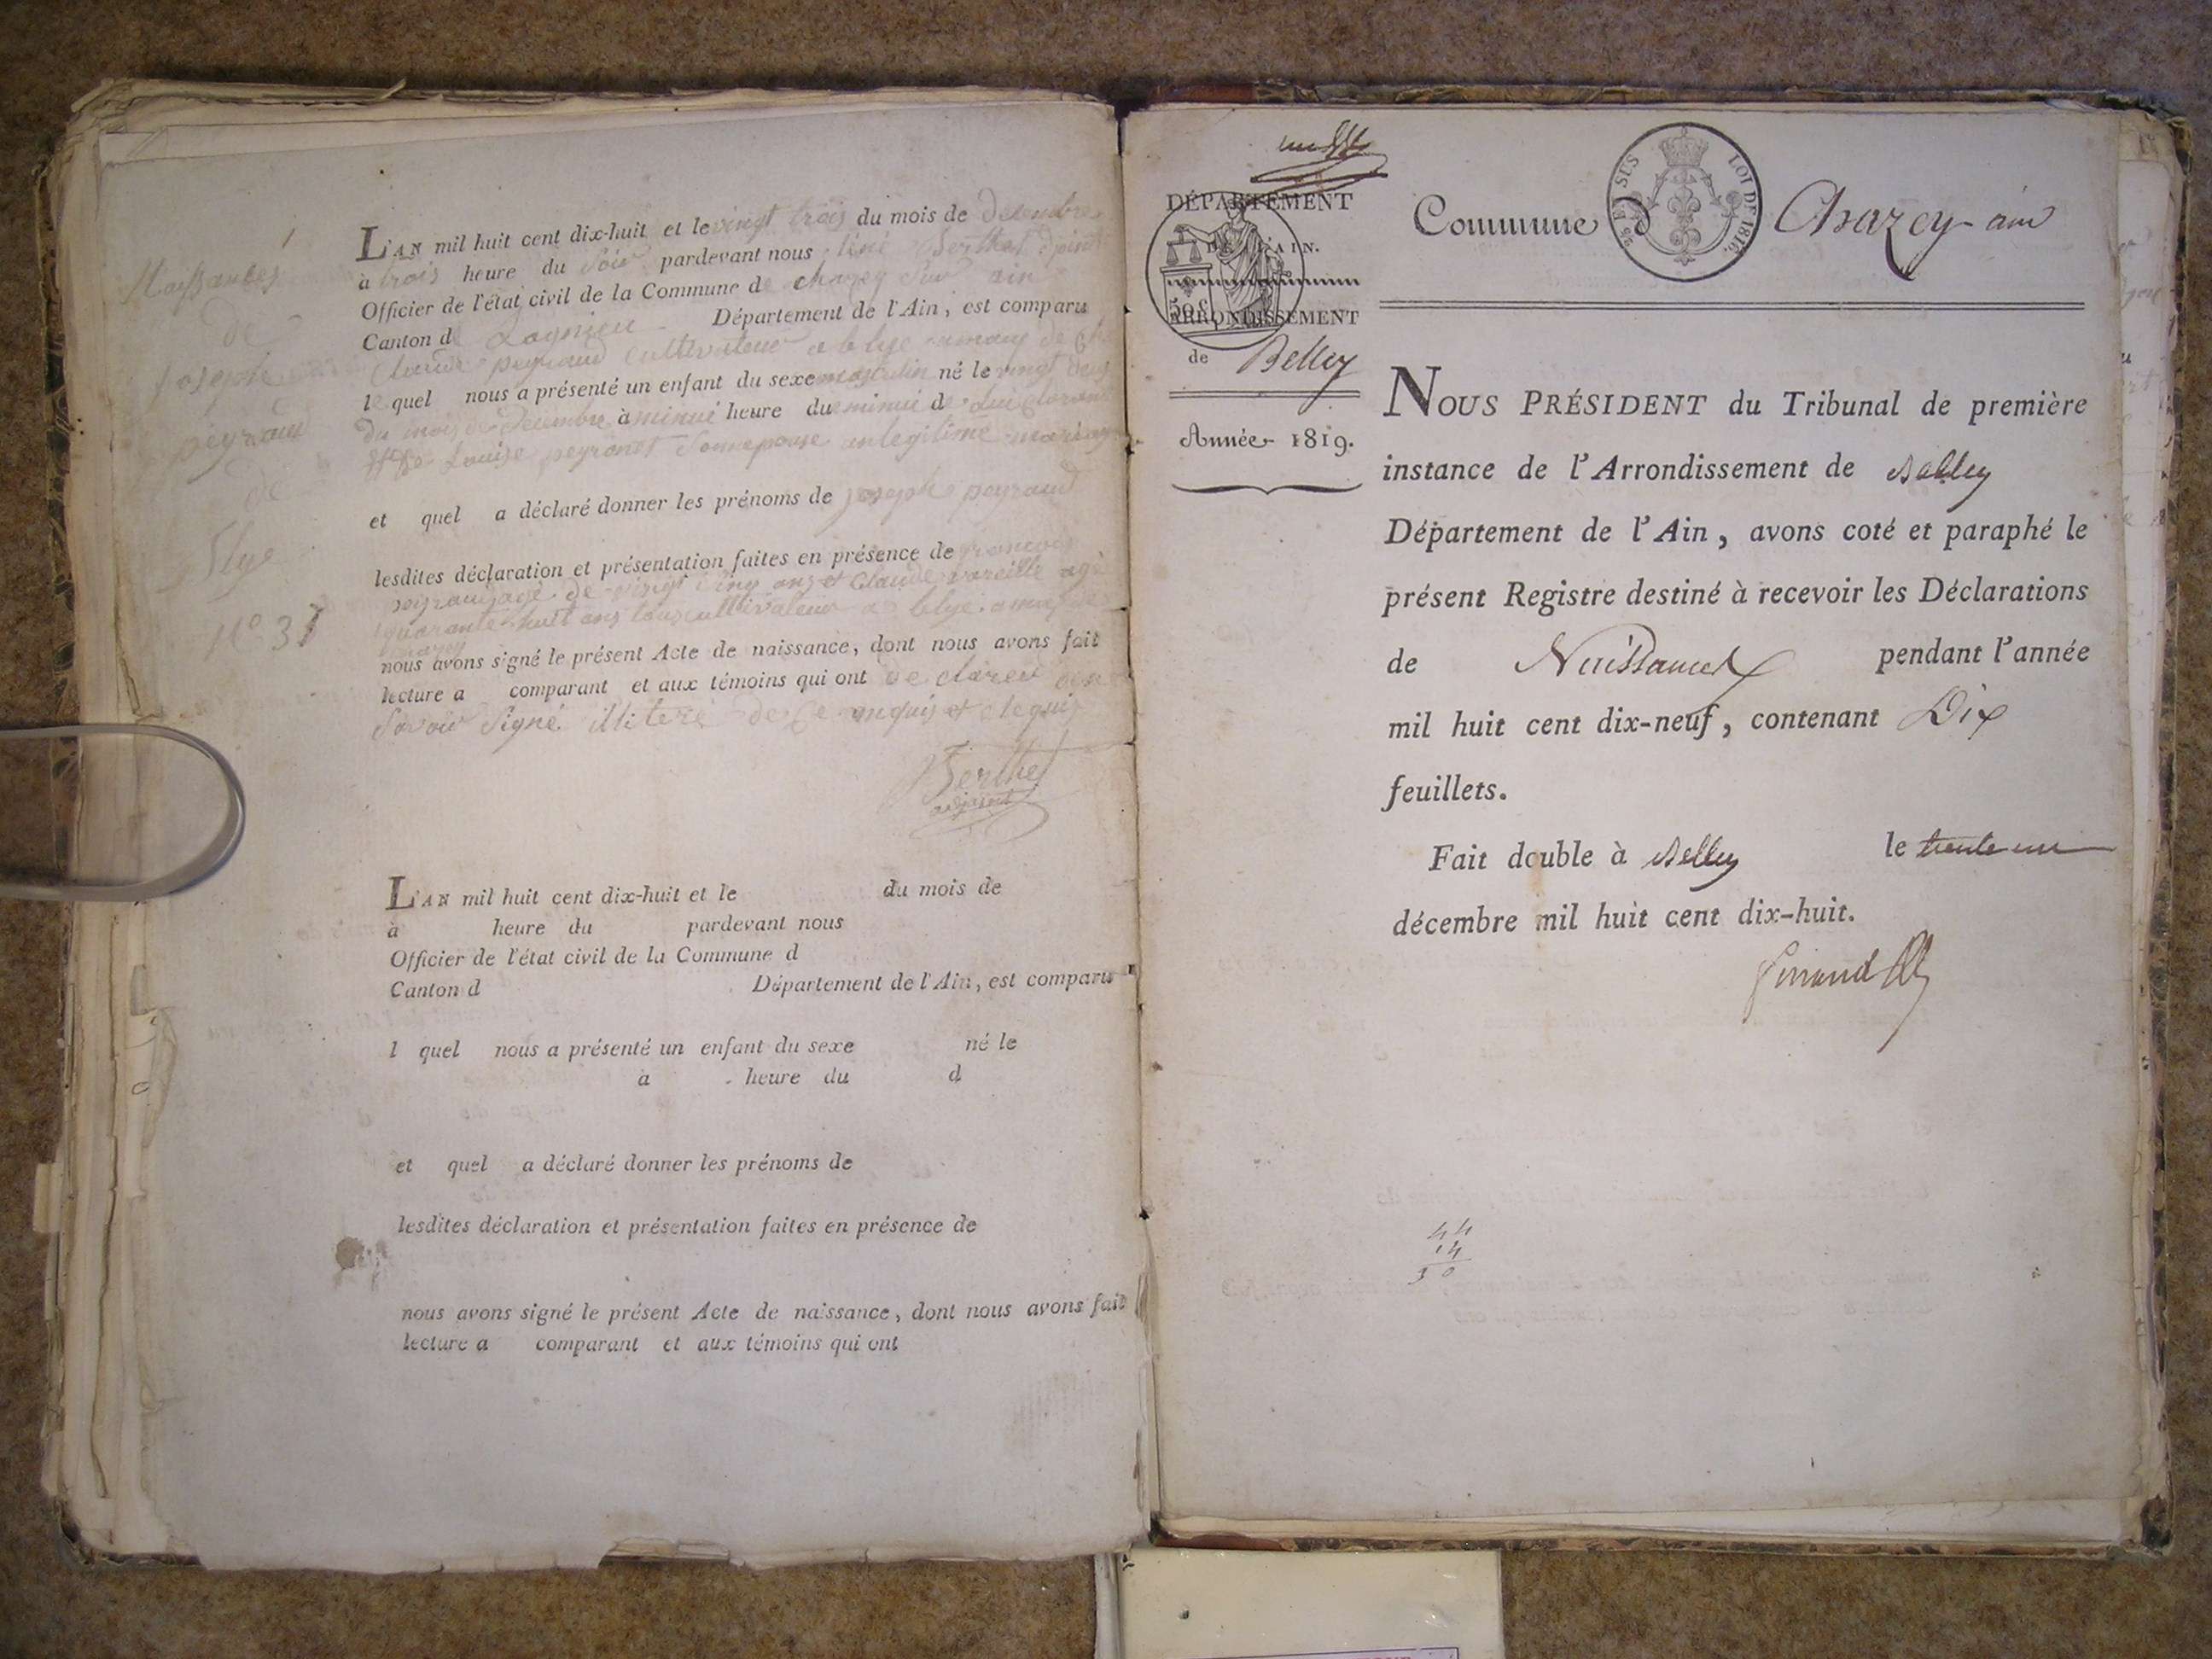 Naissances
de
joseph
peyraud
de
blye
N° 31
L'AN mil huit cent dix-huit et le vingt trois du mois de decembre
à trois heure du soir pardevant nous Berthet
Officier de l'état civil de la Commune de chazey sur ain
Canton de Lagnieu Département de l'Ain, est comparu
Claude peyraud cultivateur a blye
le quel nous a présenté un enfant du sexe masculin né le vingt deux
du mois de decembre à minui heure du minui de lui
et de Louise peyronet son epouse en legitime mariage
et quel a déclaré donner les prénoms de joseph peyraud
lesdites déclaration et présentation faites en présence de francois
peyraud agé de vingt cinq ans et Claude agé
quarante huit ans tous cultivateur a blye
nous avons signé le présent Acte de naissance, dont nous avons fait
lecture a comparant et aux témoins qui ont
savoir signé de ce enquis
Berthet
adjoint
L'AN mil huit cent dix-huit et le du mois de
à heure du pardevant nous
Officier de l'état civil de la Commune d
Canton d Département de l'Ain, est comparu
l quel nous a présenté un enfant du sexe né le
à heure du d
et quel a déclaré donner les prénoms de
lesdites déclaration et présentation faites en présence de
nous avons signé le présent Acte de naissance, dont nous avons fait
lecture a comparant et aux témoins qui ont
DÉPARTEMENT
DE L'AIN.
50 c
ARRONDISSEMENT
de Belley
Année 1819.
Commune d Chazey-ain
LOI DE 1816.
NOUS PRÉSIDENT du Tribunal de première
instance de l'Arrondissement de Belley
Département de l'Ain, avons coté et paraphé le
présent Registre destiné à recevoir les Déclarations
de Naissances pendant l'année
mil huit cent dix-neuf, contenant Dix
feuillets.
Fait double à Belley le trente un
décembre mil huit cent dix-huit.
44
14
30